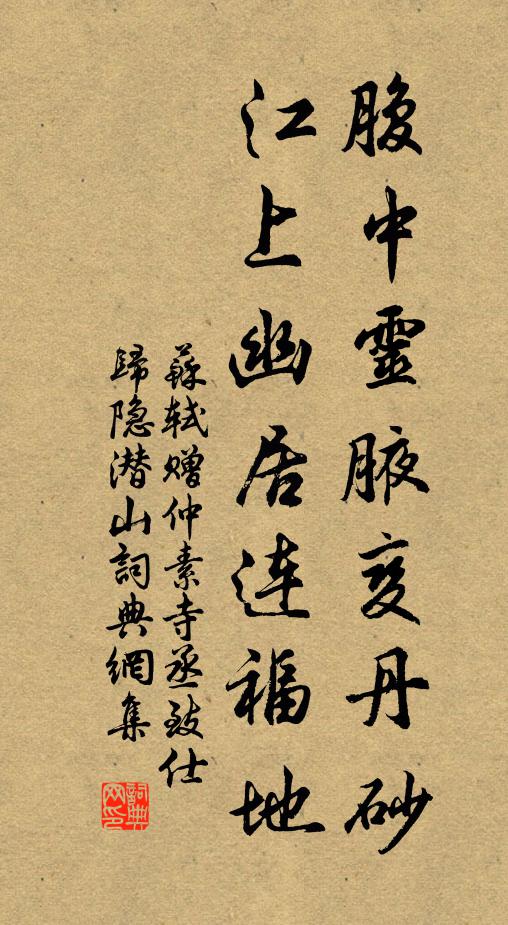 腹中靈腋变丹砂
江上幽居連福地
蘇軾赠仲素寺丞致仕
歸隐潜山詞典網集
詞典网印